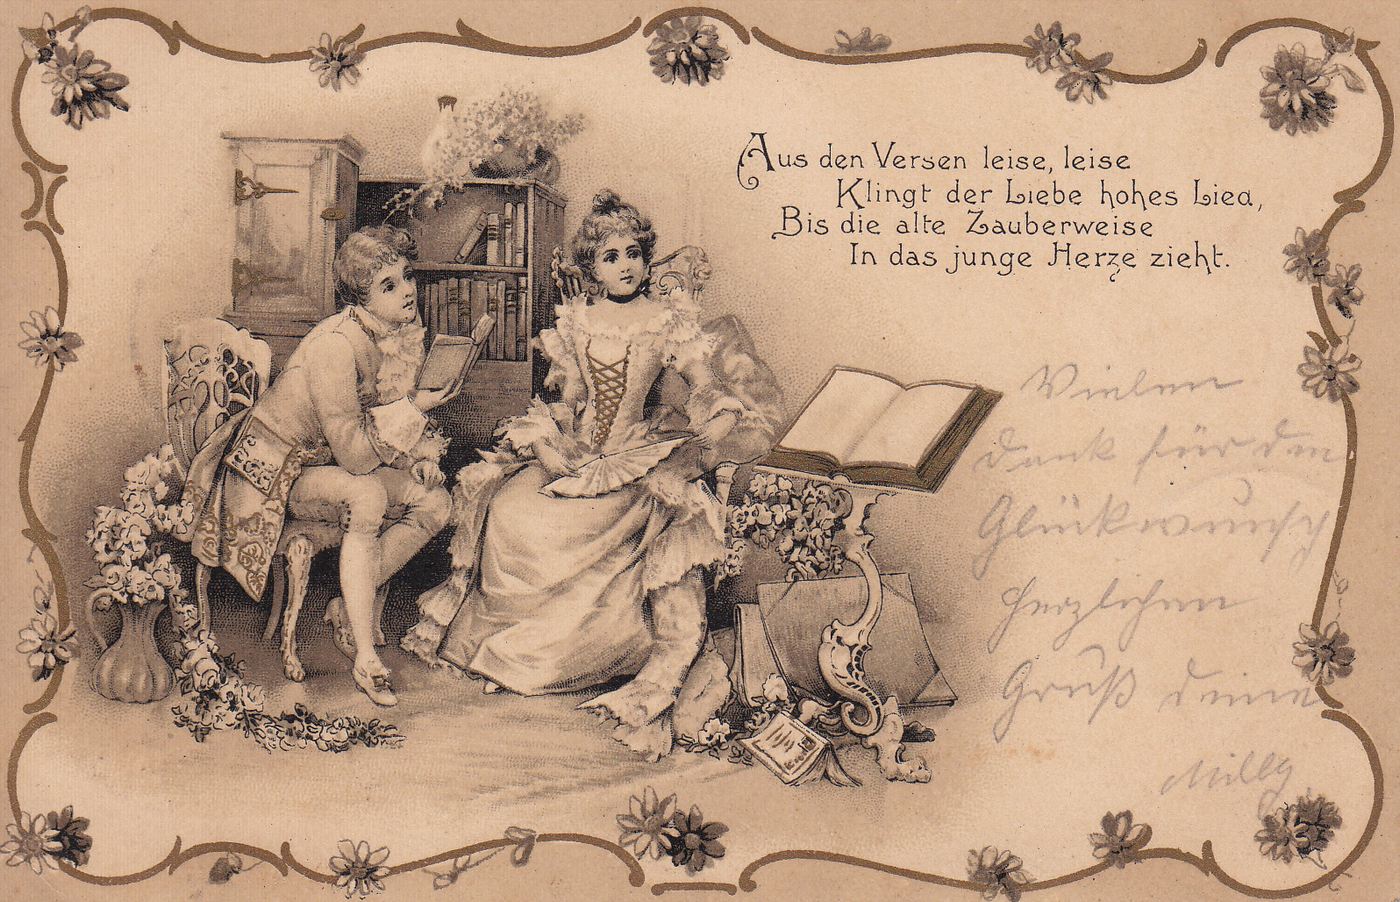 Aus den Versen leise, leise
Klingt der Liebe hohes Lied,
Bis die alte Zauberweise
In das junge Herze zieht.
Vielen
Dank für den
Glückwunsch
herzlichen
Gruß deine
Milly